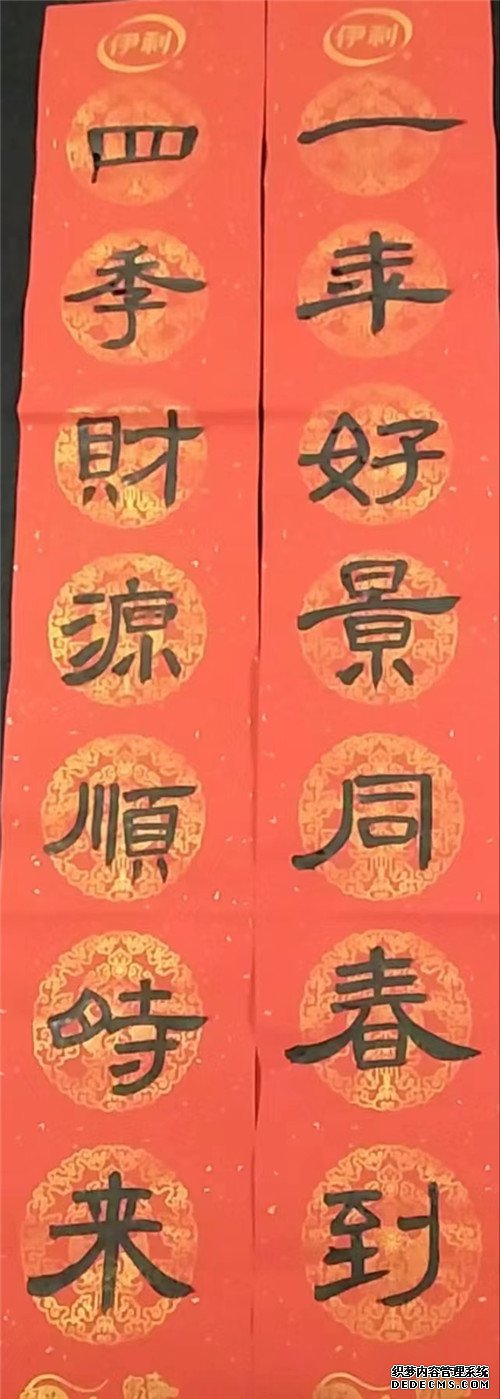 伊利
一年好景同春到
伊利
四季財源順時来
织梦内容管理系统
DEDECMS.COM